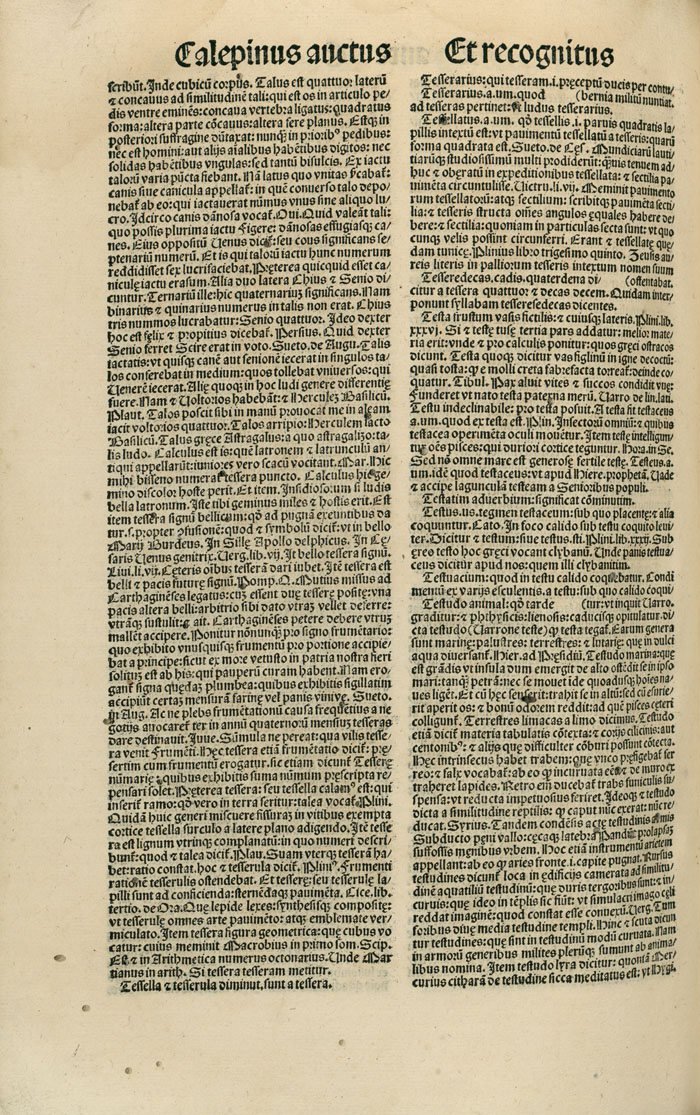 Calepinus auctus
Et recognitus
scribūt. Inde cubicū corpus. Talus est quattuor laterū
⁊ concauus ad similitudinē tali: qui est os in articulo pe/
dis ventre eminēs: concaua vertebra: ligatus: quadratus
forma: altera parte cōcauus: altera sere planus. Estq; in
posteriori suffragine dūtaxat: nunq̄ in priorib⁹ pedibus:
nec est homini: aut alijs aīalibus habētibus digitos: nec
solidas habētibus vngulas: sed tantū bisulcis. Ex iactu
talorū varia pūcta fiebant. Nā latus quo vnitas
canis siue canicula appellat̄: in quē conuerso talo depo/
nebat̄ ab eo: qui iactauerat nūmus vnus sine aliquo lu/
cro. Idcirco canis dānosa vocat̄. Oui. Quid valeāt tali:
quo possis plurima iactu figere: dānosas effugiasq; ca/
nes. Eius oppositū Uenus dicit̄: seu cous significans se/
ptenariū numerū. Et is qui talorū iactu hunc numerum
reddidisset sex lucrifaciebat. Preterea quicquid esset ca/
niculę iactu erasum. Alia duo latera Chius ⁊ Senio di
cuntur. Ternariū ille: hic quaternariū significans. Nam
binarius ⁊ quinarius numerus in talis non erat. Chius
tris nummos lucrabatur: Senio quattuor. Ideo dexter
hoc est felix ⁊ propitius dicebat̄. Persius. Quid dexter
Senio ferret Scire erat in voto. Sueto. de Augu. Talis
iactatis: vt quisq; canē aut senionē iecerat in singulos ta/
los conferebat in medium: quos tollebat vniuersos: qui
Uenerē iecerat. Alię quoq; in hoc ludi genere differentię
fuere. Nam ⁊ Uoltorios habebāt: ⁊ Herculez Basilicū.
Plaut. Talos poscit sibi in manū prouocat me in aleam
iacit voltorios quattuor. Talos arripio: Herculem iacto
Basilicū. Talus gręce Astragalus: a quo astragalizo: ta-
lis ludo. Calculus est is: quē latronem ⁊ latrunculū an/
tiqui appellarūt: iuniores vero scacū vocitant. Mar. Hic
mihi bisseno numerat̄ tessera puncto. Calculus hic ge/
mino discolor hoste perit. Et item. Insidiosorum si ludis
bella latronum. Iste tibi geminus miles ⁊ hostis erit. Est
item tessera signū bellicum: qd̄ ad pugnā exeuntibus da
tur.
Marij Burdeus. In Sille Apollo delphicus. In Cę-
saris Uenus genitrix. Uerg. lib. vij. It bello tessera signū.
Liui. li. vij. Ceteris oībus tesserā dari iubet. Itē tessera est
belli ⁊ pacis futurę signū. Pomp. Q. Mutius missus ad
Carthaginēses legatus: cuz essent duę tesserę positę: vna
pacis altera belli: arbitrio sibi dato vtraz vellet deferre:
vtrāq; sustulit: ⁊ ait. Carthaginēses petere debere vtruz
mallēt accipere. Ponitur nōnunq̄ pro signo frumētario:
quo exhibito vnusquisq; frumentū pro portione accipie/
bat a principe: sicut ex more vetusto in patria nostra fieri
solituz est ab his: qui pauperū curam habent. Nam ero/
gant̄ signa quędaz plumbea: quibus exhibitis sigillatim
accipiūt certaz mensurā farinę vel panis viniue. Sueto.
in Aug. Ac ne plebs frumētationū causa frequētius a ne
gotijs auocaret̄ ter in annū quaternorū mensiuz tesseras
dare destinauit. Juue. Sūmula ne pereat: qua vilis tesse/
ra venit frumēti. Hęc tessera etiā frumētatio dicit̄: pre/
sertim cum frumentū erogatur. sic etiam dicunt̄ Tesserę
nūmarię quibus exhibitis suma numūm prescripta re/
pensari solet. Preterea tessera: seu tessella calam⁹ est: qui
inserit̄ ramo: qd̄ vero in terra seritur: talea vocat̄. Plini.
Quidā huic generi miscuere fissuraz in vitibus exempta
cortice tessella surculo a latere plano adigendo. Itē tesse
ra est lignum vtrinq; complanatū: in quo numeri descri/
bunt̄: quod ⁊ talea dicit̄. Plau. Suam vterq; tesserā ha/
bet: ratio constat. hoc ⁊ tesserula dicit̄. Plini⁹. Frumenti
rationē tesserulis ostendebat. Et tesserę: seu tesserulę la/
pilli sunt ad conficienda: sternēdaq; pauimēta. Cice. lib.
tertio. de Ora. Quę lepide lexes: synthesisq; composite:
vt tesserulę omnes arte pauimēto: atq; emblemate ver/
miculato. Item tessera figura geometrica: quę cubus vo
catur: cuius meminit Macrobius in primo som. Scip.
Est ⁊ in Arithmetica numerus octonarius. Unde Mar
tianus in arith. Si tessera tesseram metitur.
Tessella ⁊ tesserula diminut. sunt a tessera.
Tesserarius: qui tesseram .i. pręceptū ducis per contu/
Tesserarius. a. um. quod (bernia militū nuntiat.
ad tesseras pertinet: vt ludus tesserarius.
Tessellatus. a. um. qd̄ tessellis .i. paruis quadratis la/
pillis intextū est: vt pauimentū tessellatū a tesseris: quarū
forma quadrata est. Sueto. de Cęs. Mundiciarū lauti/
tiarūq; studiosissimū multi prodiderūt: qui tenuem ad/
huc ⁊ obęratū in expeditionibus tessellata: ⁊ sectilia pa/
uimēta circuntulisse. Uictru. li. vij. Meminit pauimento
rum tessellatorū: atq; sectilium: scribitq; pauimēta secti/
lia: ⁊ tesseris structa omēs angulos equales habere de/
bere: ⁊ sectilia: quoniam in particulas secta sunt: vt quo
cunq; velis possint circunferri. Erant ⁊ tessellatę quę/
dam tunicę. Plinius libro trigesimo quinto. Zeusis au/
reis literis in palliorum tesseris intextum nomen suum
Tesseredecas. cadis. quaterdena di/ (ostentabat.
citur a tessera quattuor ⁊ decas decem. Quidam inter/
ponunt syllabam tesseresedecas dicentes.
Testa frustum vasis fictilis: ⁊ cuiusq; lateris. Plini. lib.
xxxvj. Si ⁊ testę tusę tertia pars addatur: melior mate/
ria erit: vnde ⁊ pro calculis ponitur: quos gręci ostracos
dicunt. Testa quoq; dicitur vas figlinū in igne decoctū:
quasi tosta: q̄ e molli creta fabrefacta torreat̄: deinde co/
quatur. Tibul. Pax aluit vites ⁊ succos condidit vuę:
Funderet vt nato testa paterna merū. Uarro de lin. lati.
Testu indeclinabile: pro testa posuit. A testa fit testaceus
a. um. quod ex testa est. Plin. Insectorū omniū: ⁊ quibus
testacea operimēta oculi mouētur. Item testę intelligun/
tur oēs pisces: qui duriori cortice teguntur. Hora. in Se.
Sed nō omne mare est generosę fertile testę. Testeus. a.
um. idē quod testaceus: vt apud Hiere. prophetā. Uade
⁊ accipe lagunculā testeam a Senioribus populi.
Testatim aduerbium: significat cōminutim.
Testus. us. tegmen testaceum: sub quo placentę: ⁊ alia
coquuntur. Cato. In foco calido sub testu coquito leui/
ter. Dicitur ⁊ testum: siue testus: sti. Plini. lib. xxxij. Sub
ęreo testo hoc gręci vocant clybanū. Unde panis testua/
ceus dicitur apud nos: quem illi clybanitim.
Testuacium: quod in testu calido coquebatur. Condi
menū ex varijs esculentis. a testu: sub quo calido coqui/
Testudo animal: qd̄ tarde (tur: vt inquit Uarro.
graditur: ⁊ phthysicis: lienosis: caducisq; opitulatur. di/
cta testudo (Uarrone teste) q̄ testa tegat̄. Earum genera
sunt marinę: palustres: terrestres: ⁊ lutarię: que in dulci
aqua diuersant̄. Hier. ad Presidiū. Testudo marina: quę
est grādis vt insula dum emergit de alto ostēdit se in ipso
mari: tanq̄ petrā: nec se mouet ide quoadusq; hoīes na/
ues liget. Et cū hęc senserit: trahit se in altū: sed cū esurie/
rit aperit os: ⁊ bonū odorem reddit: ad quē pisces ceteri
colligunt̄. Terrestres limacas a limo dicimus. Testudo
etiā dicit̄ materia tabulatis cōtexta: ⁊ corijs cilicinis: aut
centonib⁹: ⁊ alijs quę difficulter cōburi possunt cōtecta.
Hęc intrinsecus habet trabem: quę vnco prefigebat̄ fer
reo: ⁊ falx vocabat̄: ab eo q̄ incuruata esset ⁊ de muro ex
traheret lapides. Retro etiā ducebat̄ trabs funiculis su/
spensa: vt reducta impetuosius feriret. Ideoq; ⁊ testudo
dicta a similitudine reptilis: q̄ caput nūc exerat: nūc re/
ducat. Syrius. Tandem condensis acte testudinis armis
Subducto peni vallo: cęcaq; latebra: Pandūt prolapsaz
suffossis męnibus vrbem. Hoc etiā instrumentū arietem
appellant: ab eo q̄ aries fronte .i. capite pugnat. Rursus
testudines dicunt̄ loca in edificijs camerata ad similitu/
dinē aquatiliū testudinū: quę duris tergoribus sunt: ⁊ in/
curuis: quę ideo in tēplis sic fiūt: vt simulacri imago cęli
reddat imaginē: quod constat esse conuexū. Uerg. Tum
foribus diuę media testudine templi. Hinc ⁊ scuta dicun
tur testudines: que sint in testudinū modū curuata. Nam
in armorū generibus milites plerūq; sumunt ab anima/
libus nomina. Item testudo lyra dicitur: quoniā Mer/
curius citharā de testudine sicca meditatus est: vt Hygi.